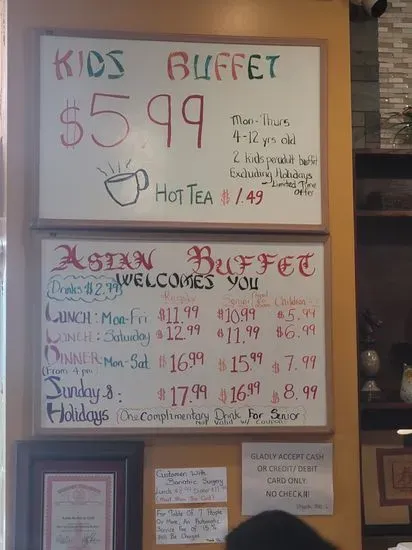 KIDS BUFFET
$5.99
Mon-Thurs
4-12 yrs old
2 kids per adult buffet
Excluding Holidays
- Limited Time
offer
HOT TEA $1.49
ASIAN BUFFET
WELCOMES YOU
Drinks $2.99
Regular Senior Children
LUNCH: Mon-Fri $11.99 $10.99 $5.99
LUNCH: Saturday $12.99 $11.99 $6.99
DINNER Mon-Sat $16.99 $15.99 $7.99
(From 4 pm)
Sunday & $17.99 $16.99 $8.99
Holidays
One Complimentary Drink For Senior
Not Valid w/ Coupon
GLADLY ACCEPT CASH
OR CREDIT/ DEBIT
CARD ONLY.
NO CHECK!!!
Customer With
Bariatric Surgery
For Table Of 7 People
Or More, An Automatic
Service Fee Of 15%
Will Be Charged